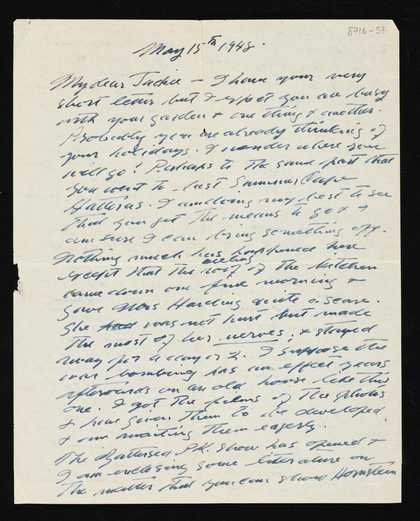 8716-57
May 15th 1948.
My dear Jackie — I have your very
short letter but I expect you are busy
with your garden & one thing & another.
Probably you are already thinking of
your holidays. I wonder where you
will go? Perhaps to the same part that
you went to last Summer Cape
Hatteras. I am doing my best to see
that you get the means to go & I
am sure I can bring something off.
Nothing much has happened here
except that the ceiling roof of the kitchen
came down one fine morning &
gave Mrs Harding quite a scare.
She had was not hurt but made
the most of her nerves, & stayed
away for a day or 2. I suppose the
war bombing has an effect years
afterwards on an old house like this
one. I got the films of the photos
& have given them to be developed
& am awaiting them eagerly.
The Battersea Pk. show has opened &
I am enclosing some literature on
the matter that you can show Hornstein